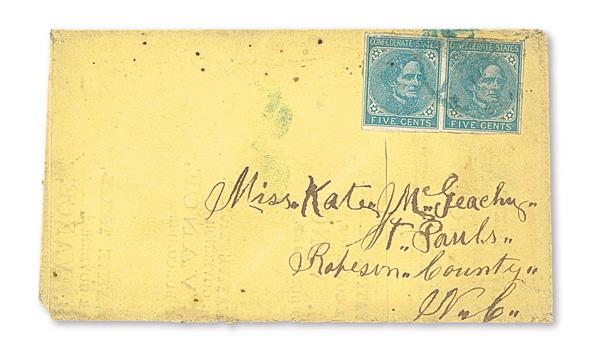 CONFEDERATE STATES CONFEDERATE STATES
FIVE CENTS FIVE CENTS
Miss Kate McGeachy
St. Pauls
Robeson County
N. C.